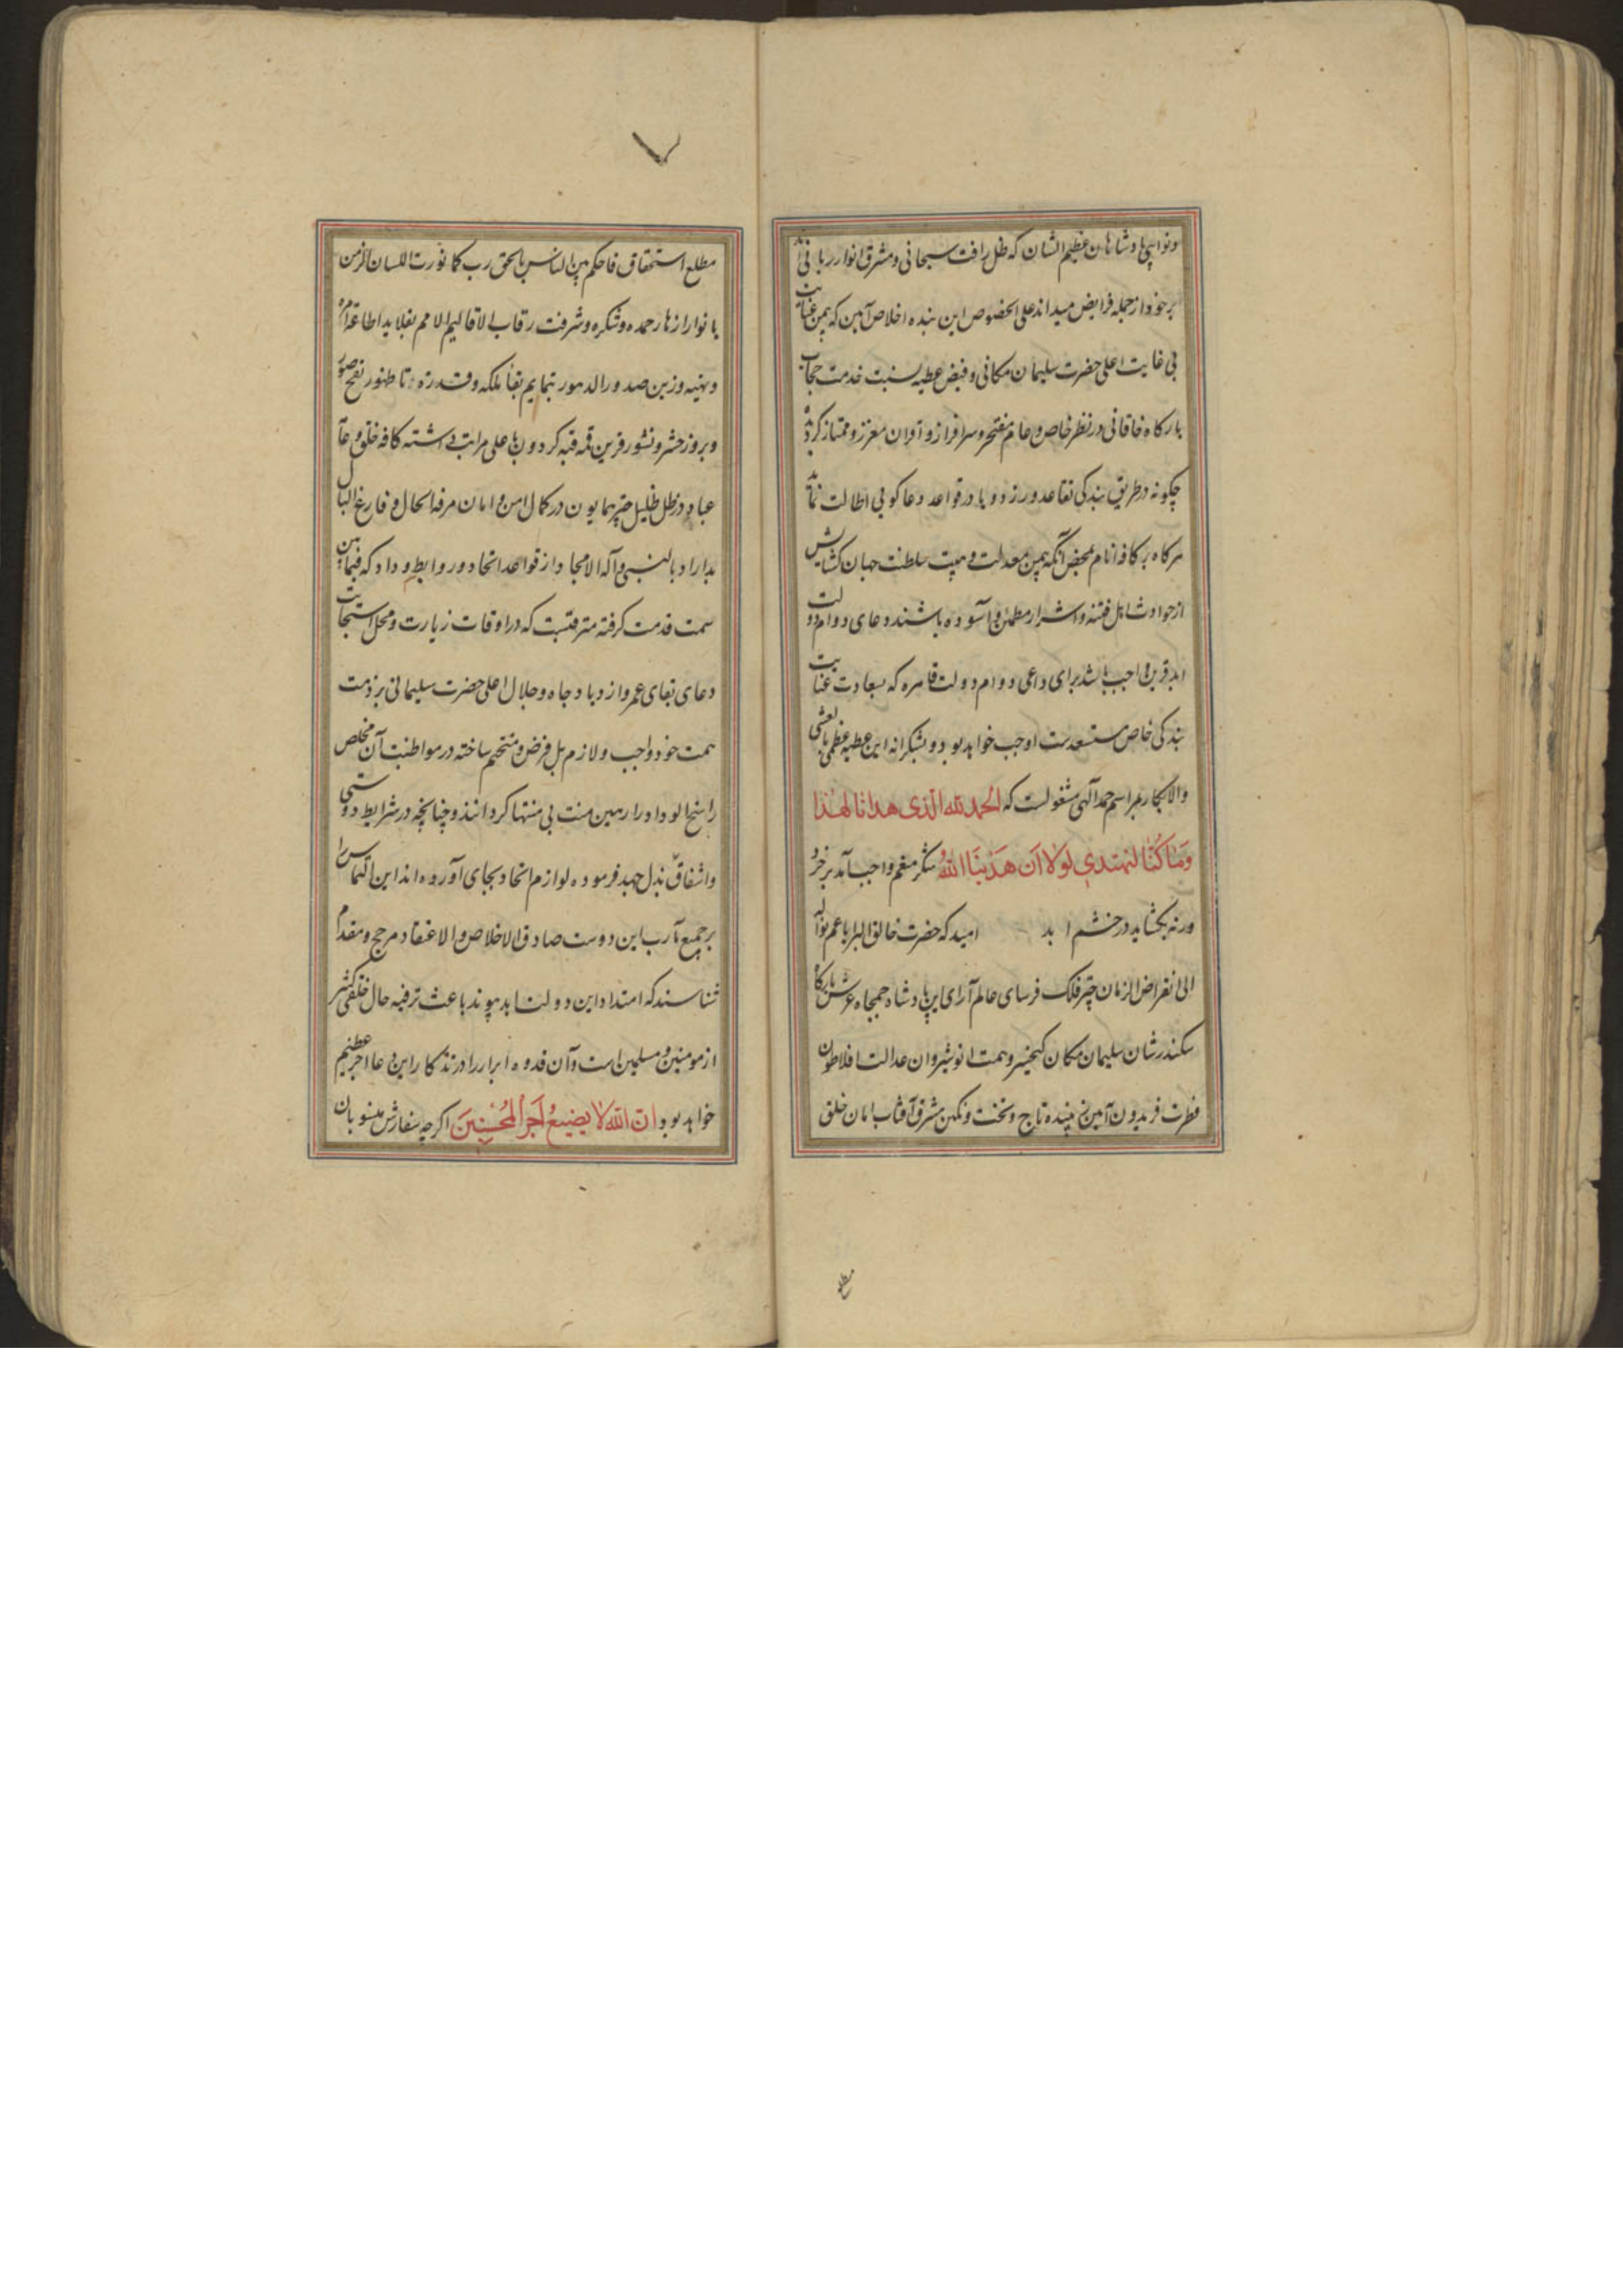 ونواهی پادشاهان عظیم الشان که ظل رافت سبحانی ومشرق انوار ربانی اند
بر خود از جمله فرایض میداند علی الخصوص این بنده اخلاص آیین که بیمن عنایت
بی غایت اعلی حضرت سلیمان مکانی وفیض عطیه نسبت خدمت حجاب
بارکاه خاقانی در نظر خاص وعام مفتخر وسرافراز و اقران معزز وممتاز کردیده
چکونه در طریق بندکی تقاعد ورزد و یا در قواعد دعا کویی اطالت نماید
هرکاه بر کافه انام بمحض آنکه بیمن معدلت و هیبت سلطنت جهان کشایش
از حوادث اهل فتنه واشرار مطمئن وآسوده باشند دعای دوام دولت
ابد قرین واجب باشد برای داعی دوام دولت قاهره که بسعادت عنایت
بندکی خاص مستسعدست اوجب خواهد بود وبشکرانه این عطیه عظمی بالعشی
والابکار بمراسم حمد الهی مشغولست که الحمد لله الذی هدانا لهذا
وما کنا لنهتدی لولا ان هدینا الله شکر منعم واجب آمد بر خرد
ورنه بکشاید در خشم ابد امید که حضرت خالق البرایا عم نواله
الی انقراض الزمان چتر فلک فرسای عالم آرای این پادشاه جمجاه عرش بارکاه
سکندر شان سلیمان مکان کیخسرو همت انوشیروان عدالت افلاطون
فطرت فریدون آیین زیبنده تاج وتخت ونکین مشرق آفتاب امان خلق
مطلع
مطلع استحقاق فاحکم بین الناس بالحق رب کما نورت اللسان الزمن
بانوار ازهار حمده وشکره وشرفت رقاب الاقالیم الامم بقلاید اطاعة امره
ونهیه وزین صدور الدهور بتمایم بقاء ملکه وقدرته تا ظهور نفخ صور
وبروز حشر ونشور قرین قمه قبه کردون باعلی مراتب داشته کافه خلق وعامه
عباد در ظل ظلیل چتر همایون در کمال امن وامان مرفه الحال وفارغ البال
بداراد بالنبی وآله الامجاد از قواعد اتحاد وروابط وداد که فیمابین
سمت قدمت کرفته مترقبست که در اوقات زیارت ومحل استجابت
دعای بقای عمر وازدیاد جاه وجلال اعلی حضرت سلیمانی بر ذمت
همت خود واجب ولازم بل فرض ومتحتم ساخته در مواظبت آن مخلص
راسخ الوداد را رهین منت بی منتها کردانند وچنانچه در شرایط دوستی
واشفاق بذل جهد فرموده لوازم اتحاد بجای آورده اند این التماس را
بر جمیع مآرب این دوست صادق الاخلاص والاعتقاد مرجح ومقدم
شناسند که امتداد این دولت ابد پیوند باعث ترفیه حال خلقی کثیر
از مومنین ومسلمین است وآن قدوه ابرار را در تذکار این دعا اجر عظیم
خواهد بود ان الله لا یضیع اجر المحسنین اکرچه سفارش منسوبان